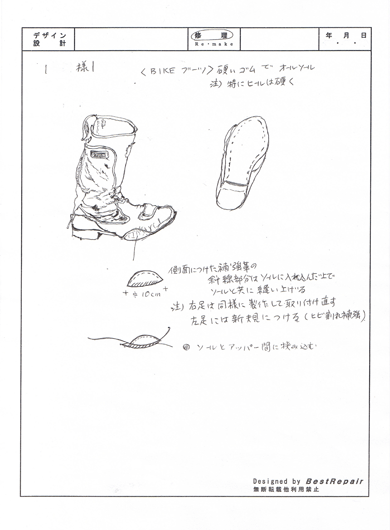 デザイン 修理 年 月 日
設計 Re·make ・ ・
様1
<BIKE ブーツ>硬いゴムで オールソール
注)特にヒールは硬く
側面につけた補強革の
斜線部分はソールに入れ込んだ上で
ソールと共に縫い上げる
10cm
注)右足は同様に製作して取り付け直す
左足には新規につける(ヒビ割れ補強)
ソールとアッパー間に挟み込む
Designed by BestRepair
無断転載他利用禁止